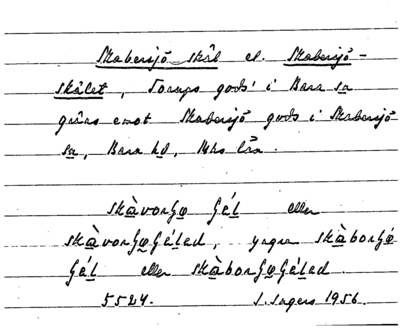 Skabersjö skäl el. Skabersjö-
skälet, Torups gods' i Bara sn
gräns emot Skabersjö gods i Skabersjö
sn, Bara hd, Mhs län.
skàvorʒǫ ʃɛ́l eller
skàvorʒǫʃɛ́led, yngre skàborʒǫ
ʃɛ́l eller skàborʒǫʃɛ́led.
5524. I. Ingers 1956.